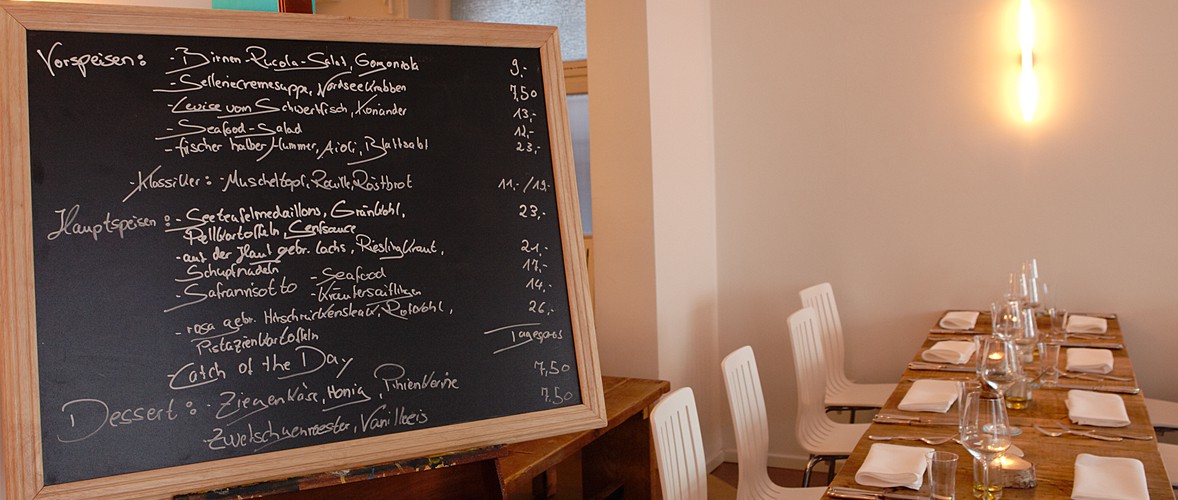 Vorspeisen: - Birnen-Rucola-Salat, Gorgonzola 9,-
- Selleriecremesuppe, Nordseekrabben 7,50
- Cevice vom Schwertfisch, Koriander 13,-
- Seafood-Salad 12,-
- frischer halber Hummer, Aioli, Blattsalat 23,-
- Klassiker: - Muscheltopf, Rouille, Röstbrot 11,-/19,-
Hauptspeisen: - Seeteufelmedaillons, Grünkohl, 23,-
Pellkartoffeln, Senfsauce
- auf der Haut gebr. Lachs, Rieslingkraut, 21,-
Schupfnudeln
- Safranrisotto - Seafood 17,-
- Kräutersaitlingen 14,-
- rosa gebr. Hirschrückensteak, Rotkohl, 26,-
Pistazienkartoffeln
Catch of the Day Tagespreis
Dessert: - Ziegenkäse, Honig, Pinienkerne 7,50
- Zwetschgenröster, Vanilleeis 7,50